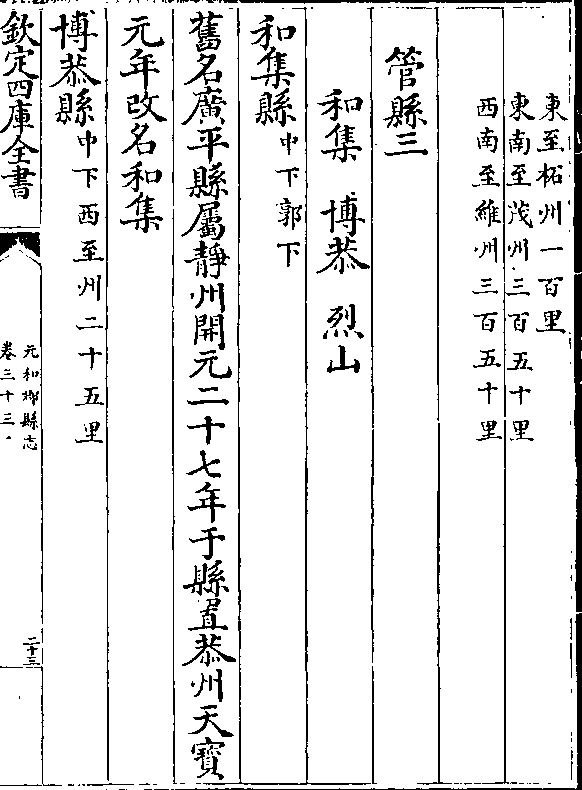 東至柘州一百里
東南至茂州三百五十里
西南至維州三百五十里
管縣三
和集 博恭 烈山
和集縣中下郭下
舊名廣平縣屬靜州開元二十七年于縣置恭州天寶
元年改名和集
博恭縣中下西至州二十五里
欽定四庫全書
元和郡縣志
卷三十三
二十三